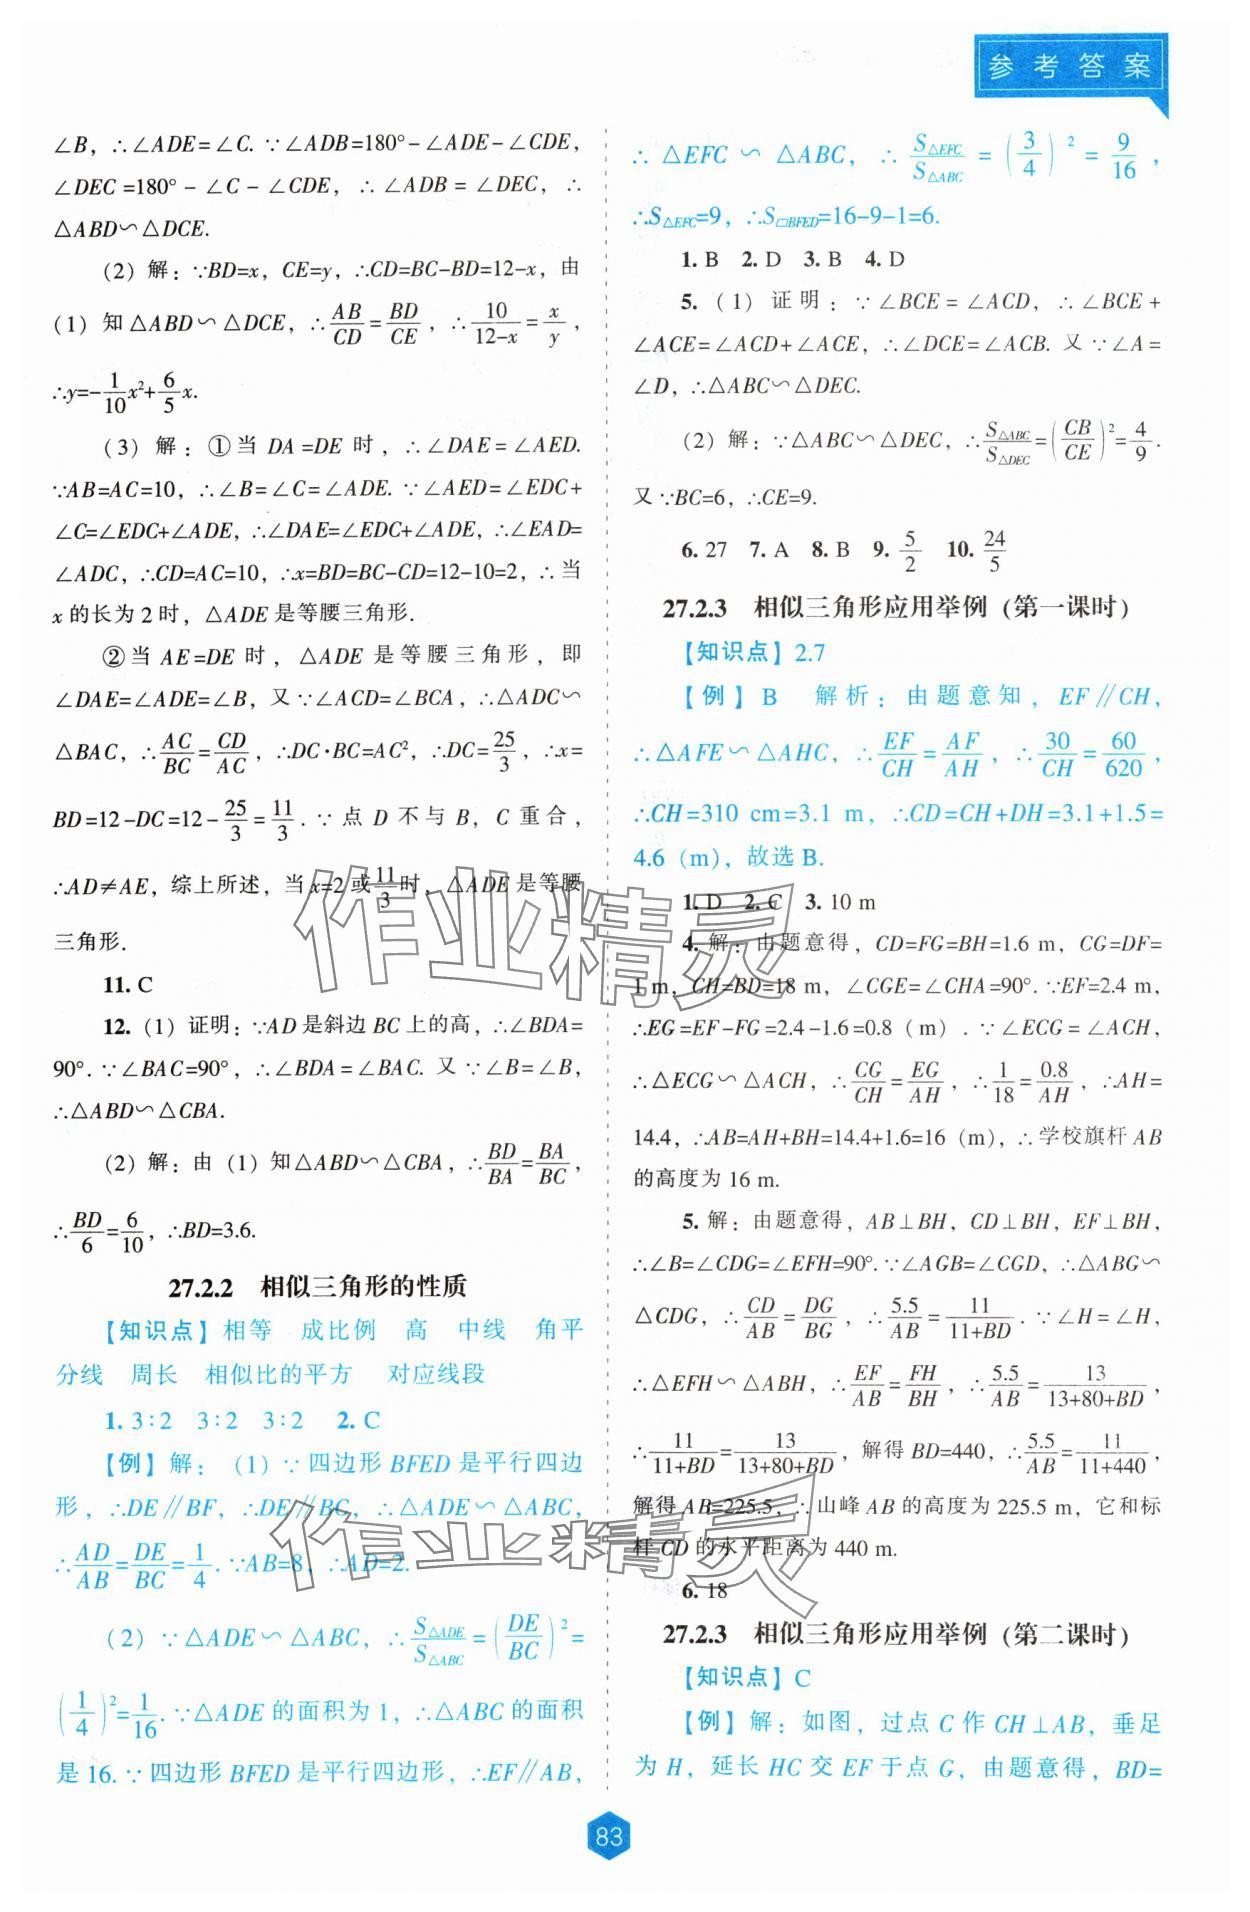 参考答案
∠B，∴∠ADE=∠C. ∵∠ADB=180°-∠ADE-∠CDE，
∠DEC=180°-∠C-∠CDE，∴∠ADB=∠DEC，∴
△ABD∽△DCE.
(2) 解：∵BD=x，CE=y，∴CD=BC-BD=12-x，由
(1) 知△ABD∽△DCE，∴AB/CD=BD/CE，∴10/(12-x)=x/y，
∴y=-1/10x²+6/5x.
(3) 解：①当DA=DE时，∴∠DAE=∠AED.
∵AB=AC=10，∴∠B=∠C=∠ADE. ∵∠AED=∠EDC+
∠C=∠EDC+∠ADE，∴∠DAE=∠EDC+∠ADE，∴∠EAD=
∠ADC，∴CD=AC=10，∴x=BD=BC-CD=12-10=2，∴当
x的长为2时，△ADE是等腰三角形.
②当AE=DE时，△ADE是等腰三角形，即
∠DAE=∠ADE=∠B，又∵∠ACD=∠BCA，∴△ADC∽
△BAC，∴AC/BC=CD/AC，∴DC·BC=AC²，∴DC=25/3，∴x=
BD=12-DC=12-25/3=11/3. ∵点D不与B，C重合，
∴AD≠AE，综上所述，当x=2或11/3时，△ADE是等腰
三角形.
11. C
12. (1) 证明：∵AD是斜边BC上的高，∴∠BDA=
90°. ∵∠BAC=90°，∴∠BDA=∠BAC. 又∵∠B=∠B，
∴△ABD∽△CBA.
(2) 解：由 (1) 知△ABD∽△CBA，∴BD/BA=BA/BC，
∴BD/6=6/10，∴BD=3.6.
27.2.2 相似三角形的性质
【知识点】相等 成比例 高 中线 角平
分线 周长 相似比的平方 对应线段
1. 3∶2 3∶2 3∶2 2. C
【例】解：(1) ∵四边形BFED是平行四边
形，∴DE∥BF，∴DE∥BC，∴△ADE∽△ABC，
∴AD/AB=DE/BC=1/4. ∵AB=8，∴AD=2.
(2) ∵△ADE∽△ABC，∴S△ADE/S△ABC=(DE/BC)²=
(1/4)²=1/16. ∵△ADE的面积为1，∴△ABC的面积
是16. ∵四边形BFED是平行四边形，∴EF∥AB，
∴△EFC∽△ABC，∴S△EFC/S△ABC=(3/4)²=9/16，
∴S△EFC=9，∴S▱BFED=16-9-1=6.
1. B 2. D 3. B 4. D
5. (1) 证明：∵∠BCE=∠ACD，∴∠BCE+
∠ACE=∠ACD+∠ACE，∴∠DCE=∠ACB. 又∵∠A=
∠D，∴△ABC∽△DEC.
(2) 解：∵△ABC∽△DEC，∴S△ABC/S△DEC=(CB/CE)²=4/9.
又∵BC=6，∴CE=9.
6. 27 7. A 8. B 9. 5/2 10. 24/5
27.2.3 相似三角形应用举例 (第一课时)
【知识点】2.7
【例】B 解析：由题意知，EF∥CH，
∴△AFE∽△AHC，∴EF/CH=AF/AH，∴30/CH=60/620，
∴CH=310 cm=3.1 m，∴CD=CH+DH=3.1+1.5=
4.6 (m)，故选B.
1. D 2. C 3. 10 m
4. 解：由题意得，CD=FG=BH=1.6 m，CG=DF=
1 m，CH=BD=18 m，∠CGE=∠CHA=90°. ∵EF=2.4 m，
∴EG=EF-FG=2.4-1.6=0.8 (m). ∵∠ECG=∠ACH，
∴△ECG∽△ACH，∴CG/CH=EG/AH，∴1/18=0.8/AH，∴AH=
14.4，∴AB=AH+BH=14.4+1.6=16 (m)，∴学校旗杆AB
的高度为16 m.
5. 解：由题意得，AB⊥BH，CD⊥BH，EF⊥BH，
∴∠B=∠CDG=∠EFH=90°. ∵∠AGB=∠CGD，∴△ABG∽
△CDG，∴CD/AB=DG/BG，∴5.5/AB=11/(11+BD). ∵∠H=∠H，
∴△EFH∽△ABH，∴EF/AB=FH/BH，∴5.5/AB=13/(13+80+BD)，
∴11/(11+BD)=13/(13+80+BD)，解得BD=440，∴5.5/AB=11/(11+440)，
解得AB=225.5，∴山峰AB的高度为225.5 m，它和标
杆CD的水平距离为440 m.
6. 18
27.2.3 相似三角形应用举例 (第二课时)
【知识点】C
【例】解：如图，过点C作CH⊥AB，垂足
为H，延长HC交EF于点G，由题意得，BD=
83
作业精灵
作业精灵